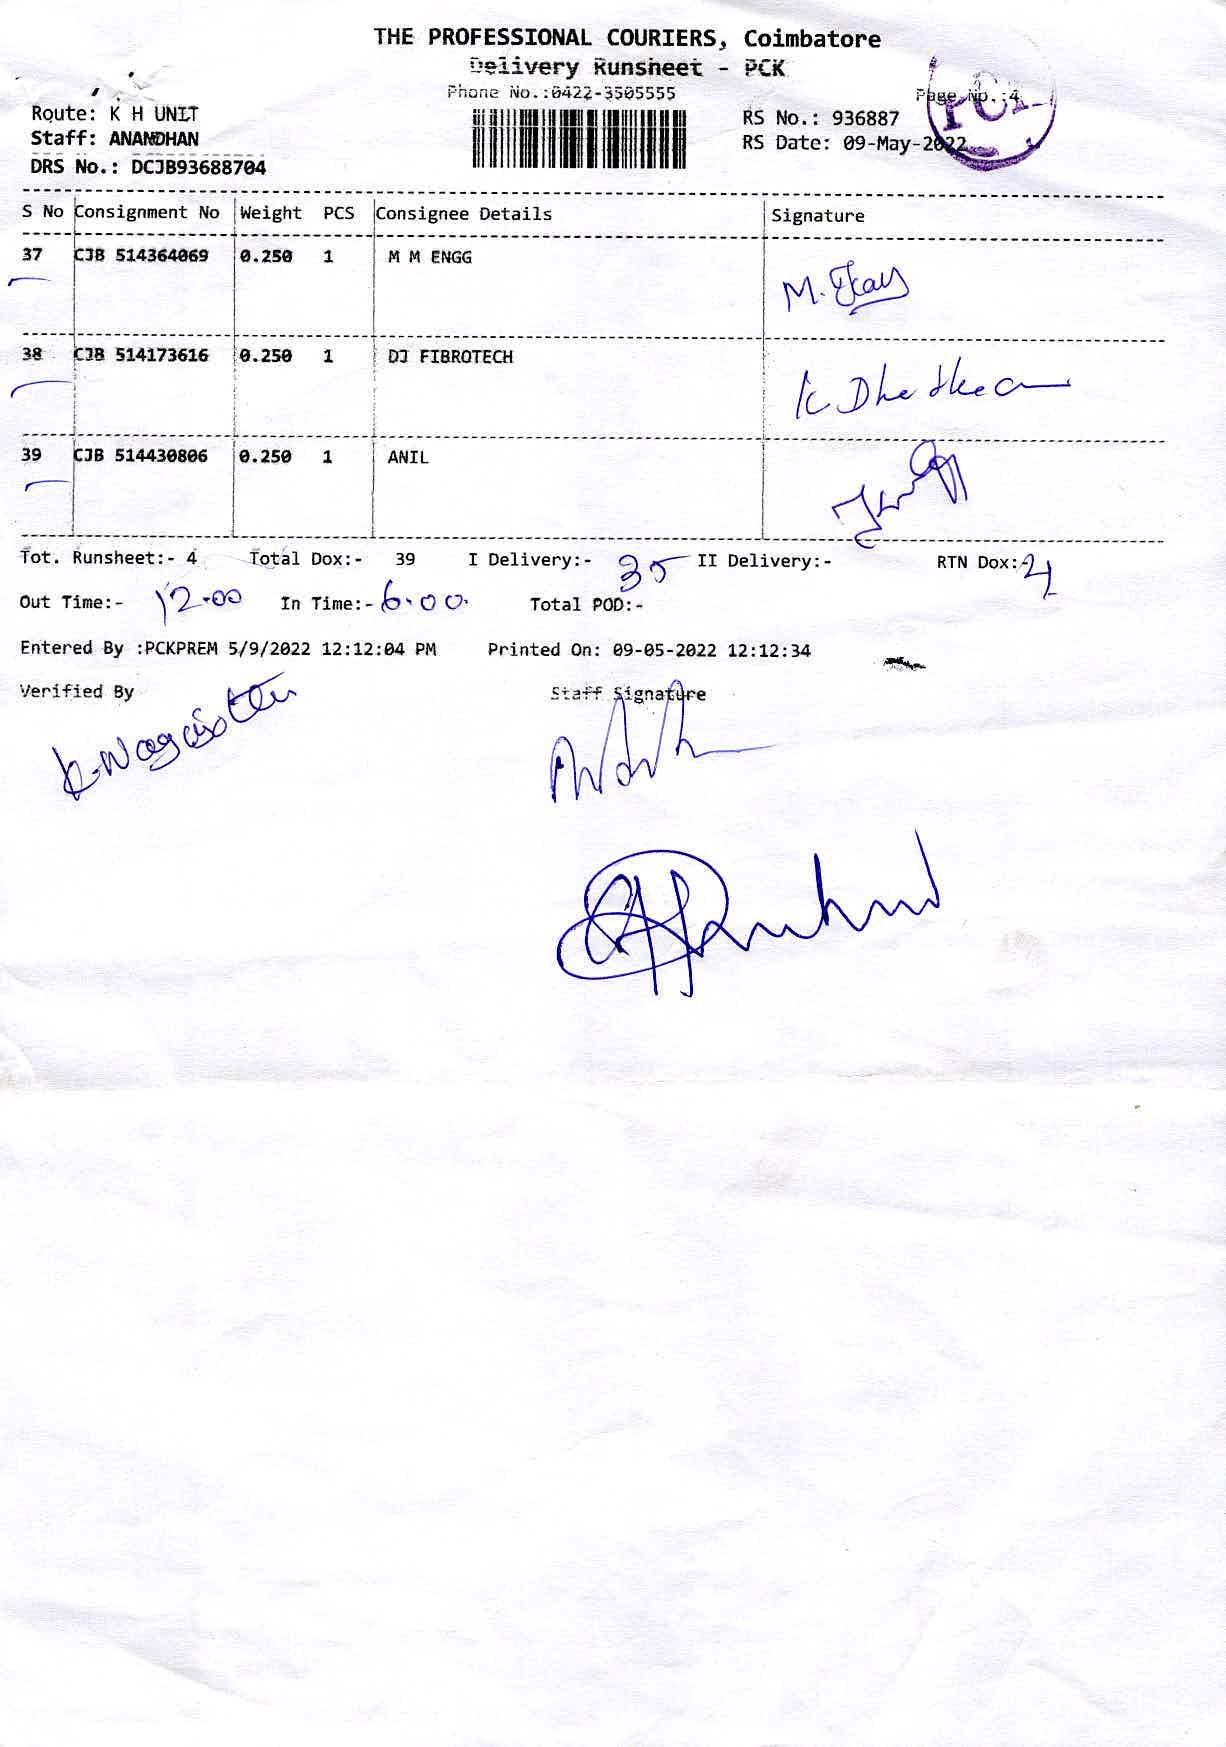 THE PROFESSIONAL COURIERS, Coimbatore
Delivery Runsheet - PCK
Phone No.:0422-3505555
Page No.:4
PCK
Route: K H UNIT
RS No.: 936887
Staff: ANANDHAN
RS Date: 09-May-2022
DRS No.: DCJB93688704
S No Consignment No Weight PCS Consignee Details Signature
37 CJB 514364069 0.250 1 M M ENGG
38 CJB 514173616 0.250 1 DJ FIBROTECH
39 CJB 514430806 0.250 1 ANIL
Tot. Runsheet:- 4 Total Dox:- 39 I Delivery:- 35 II Delivery:- RTN Dox:- 4
Out Time:- 12.00 In Time:- 6.00. Total POD:-
Entered By :PCKPREM 5/9/2022 12:12:04 PM Printed On: 09-05-2022 12:12:34
Verified By Staff Signature